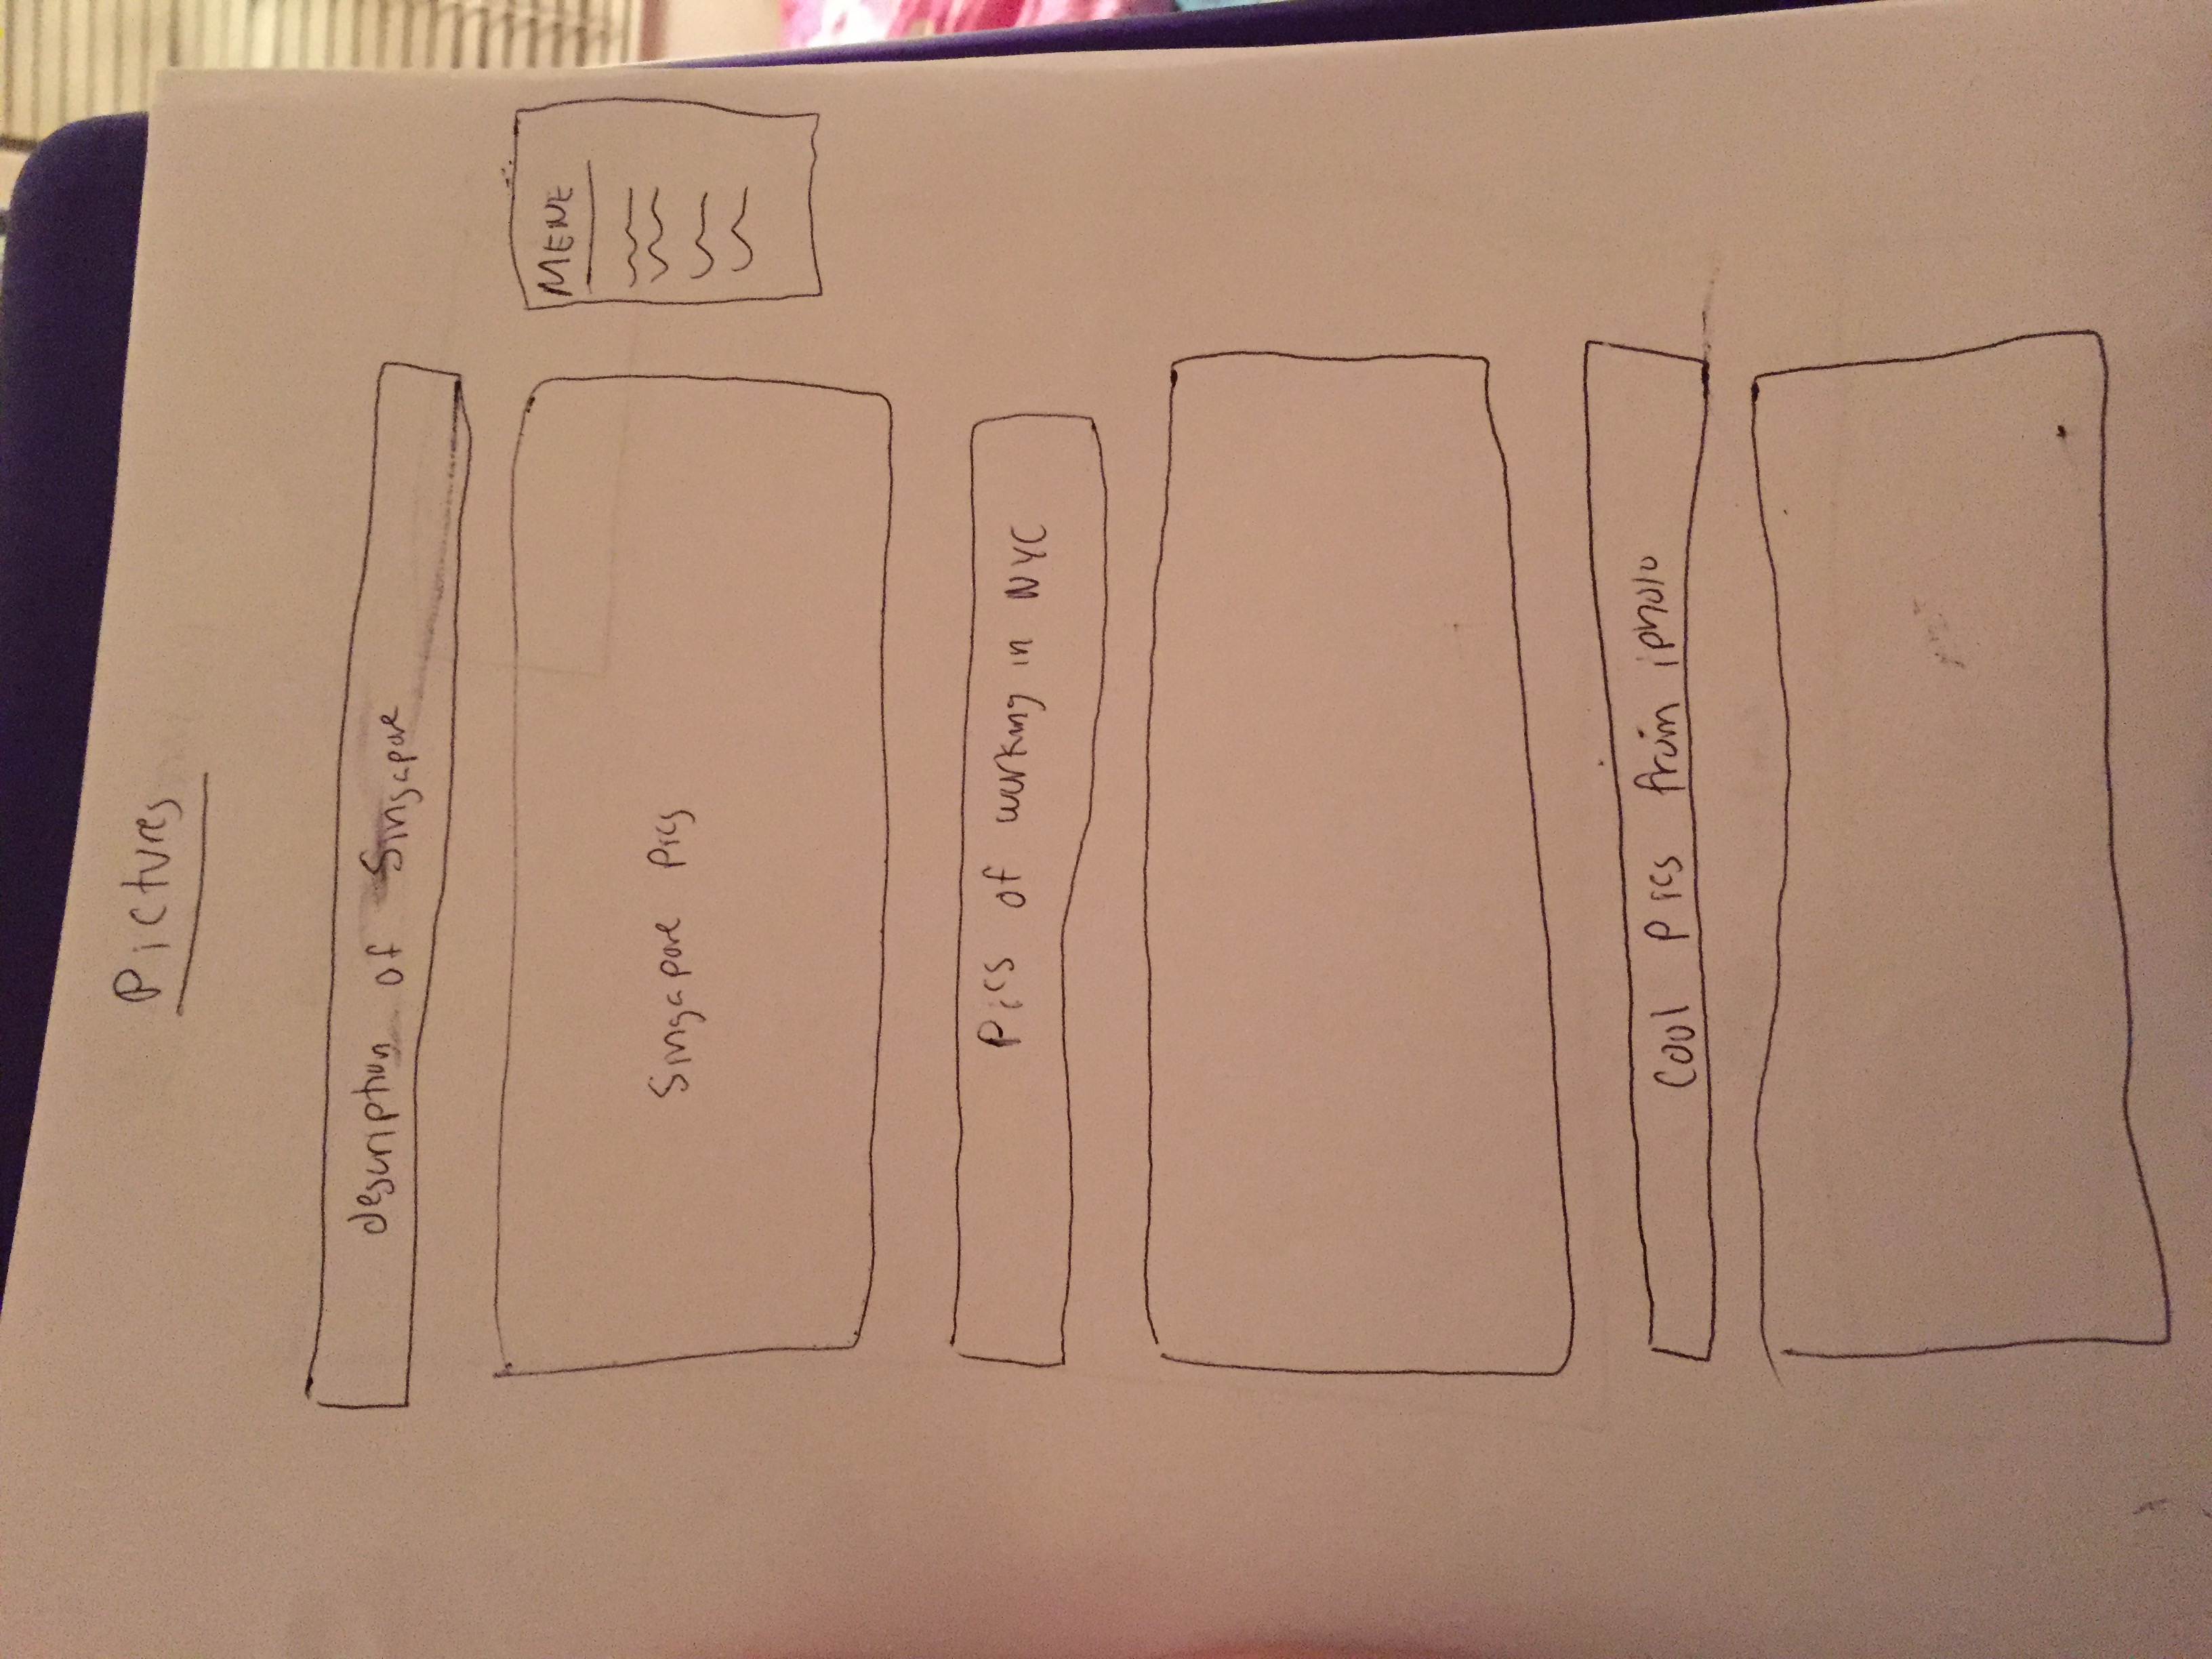 Pictures
description of Singapore
MENE
Singapore Pics
Pics of working in NYC
Cool Pics from iphoto